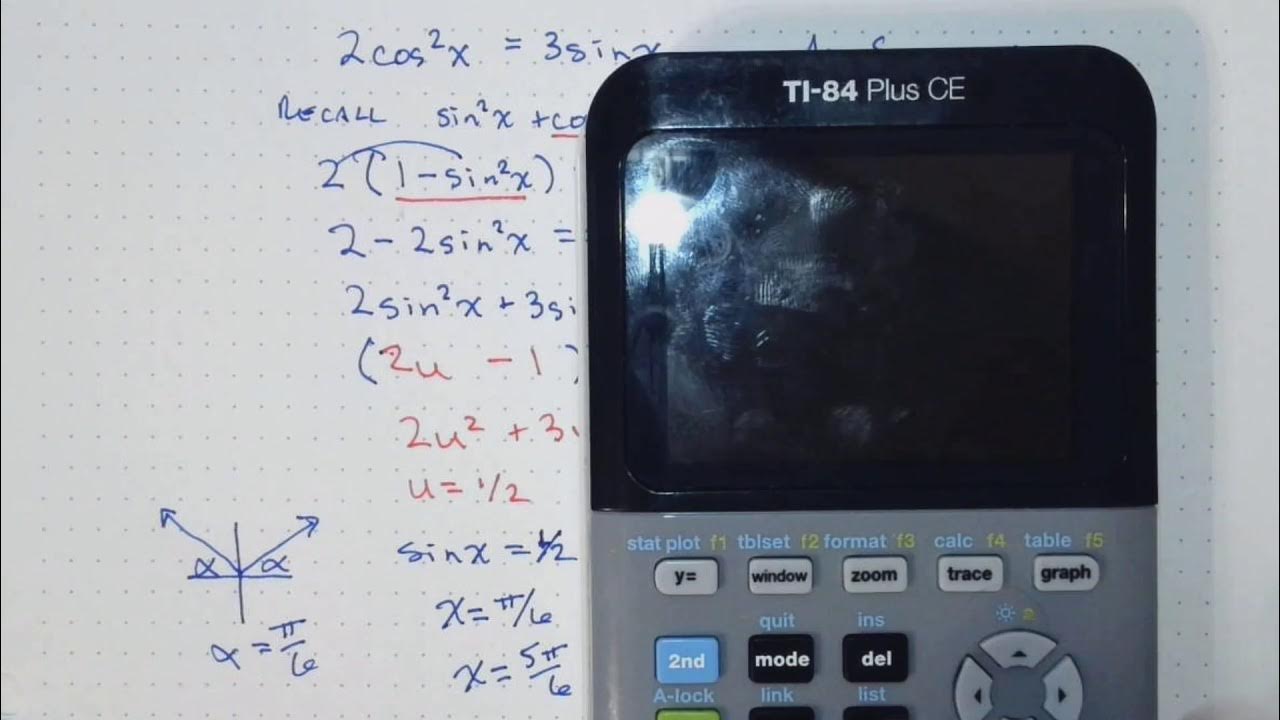 2cos²x = 3sinx
RECALL sin²x + co
2(1-sin²x)
2 - 2sin²x =
2sin²x + 3si
(2u - 1)
2u² + 3
u = 1/2
sinx = 1/2
x = π/6
x = 5π/6
α α
α = π/6
TI-84 Plus CE
stat plot f1 tblset f2 format f3 calc f4 table f5
y= window zoom trace graph
quit ins
2nd mode del
A-lock link list